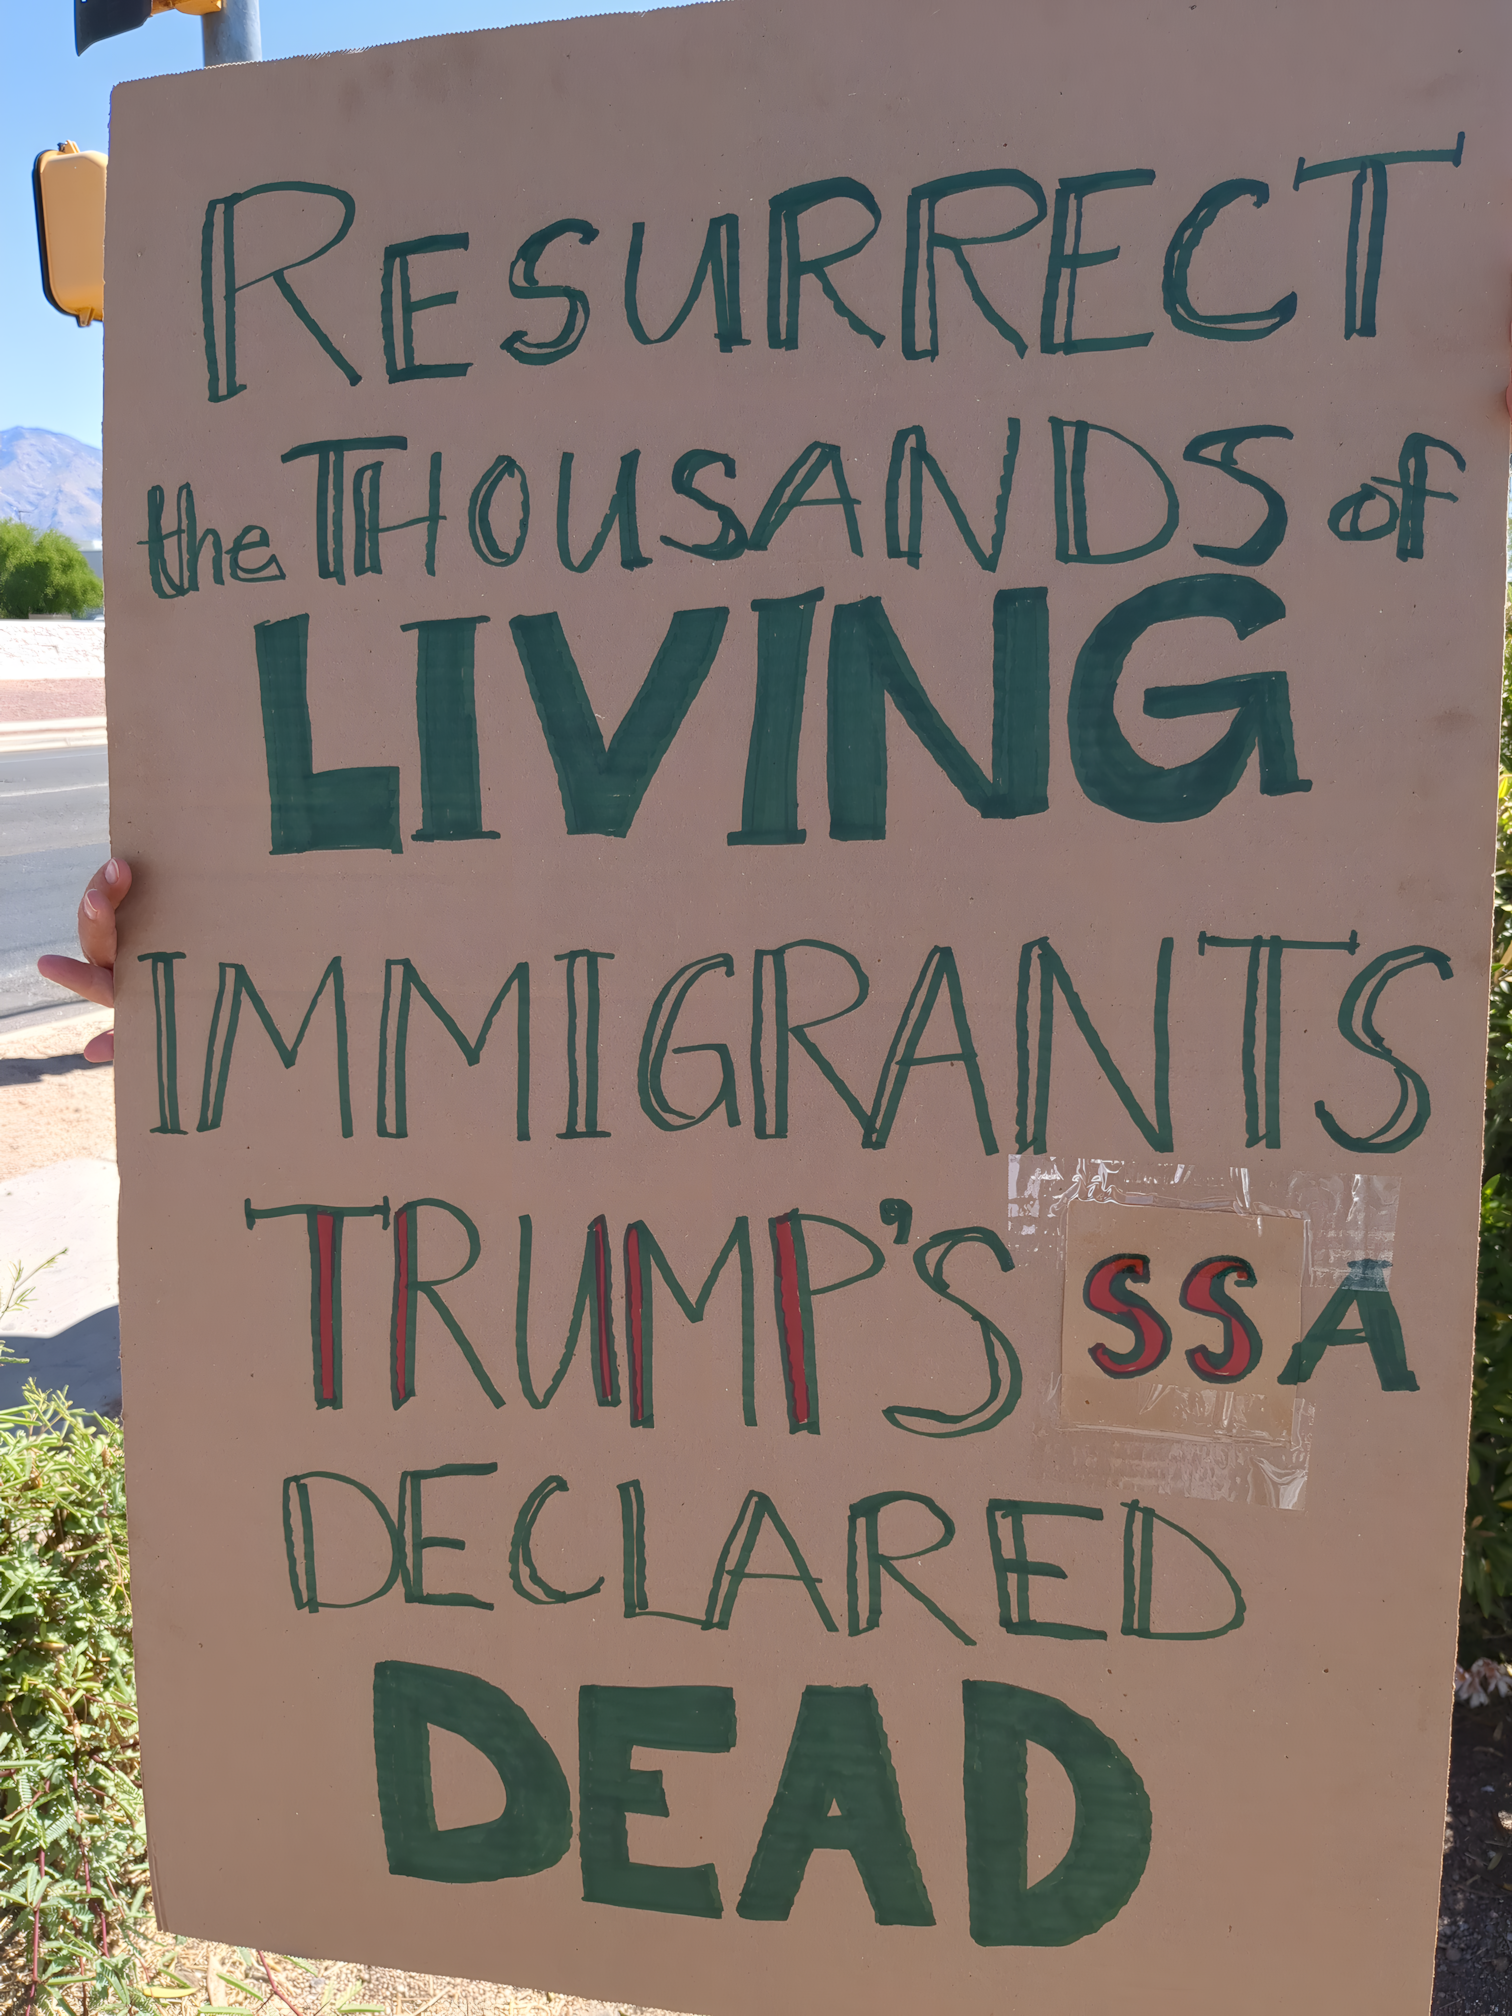 RESURRECT
the THOUSANDS of
LIVING
IMMIGRANTS
TRUMP'S SSA
DECLARED
DEAD